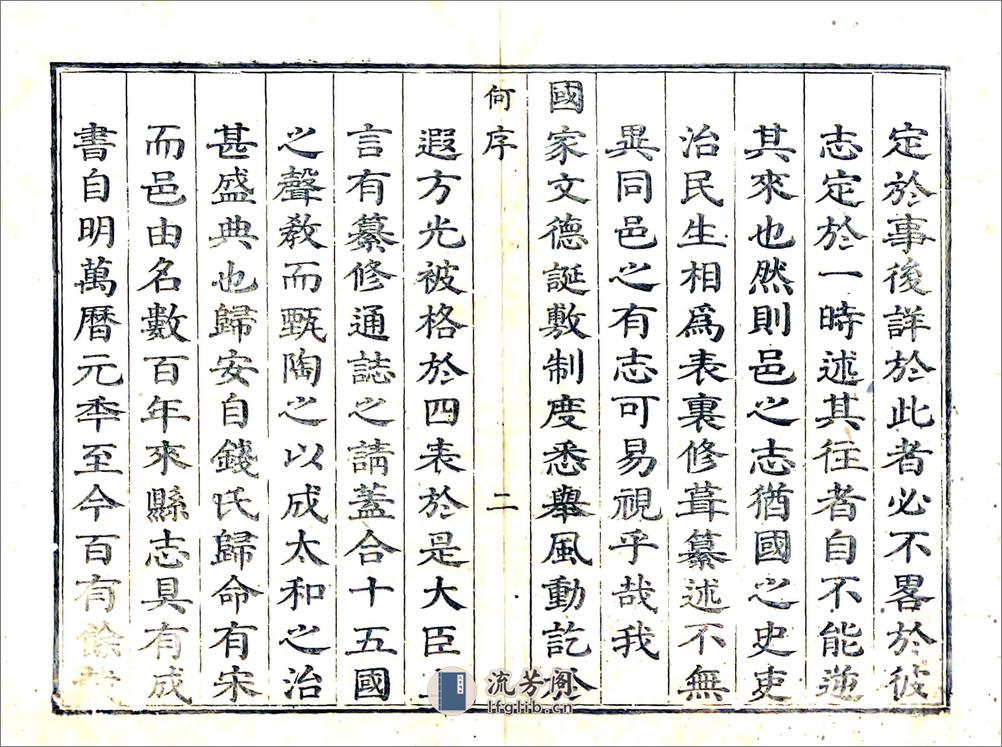 定於事後詳於此者必不畧於彼
志定於一時述其往者自不能逆
其來也然則邑之志猶國之史吏
治民生相爲表裏修葺纂述不無
異同邑之有志可易視乎哉我
國家文德誕敷制度悉舉風動訖於
何序 二
遐方光被格於四表於是大臣
言有纂修通誌之請蓋合十五國
之聲教而甄陶之以成太和之治
甚盛典也歸安自錢氏歸命有宋
而邑由名數百年來縣志具有成
書自明萬曆元秊至今百有餘
流芳阁
lfglib.cn